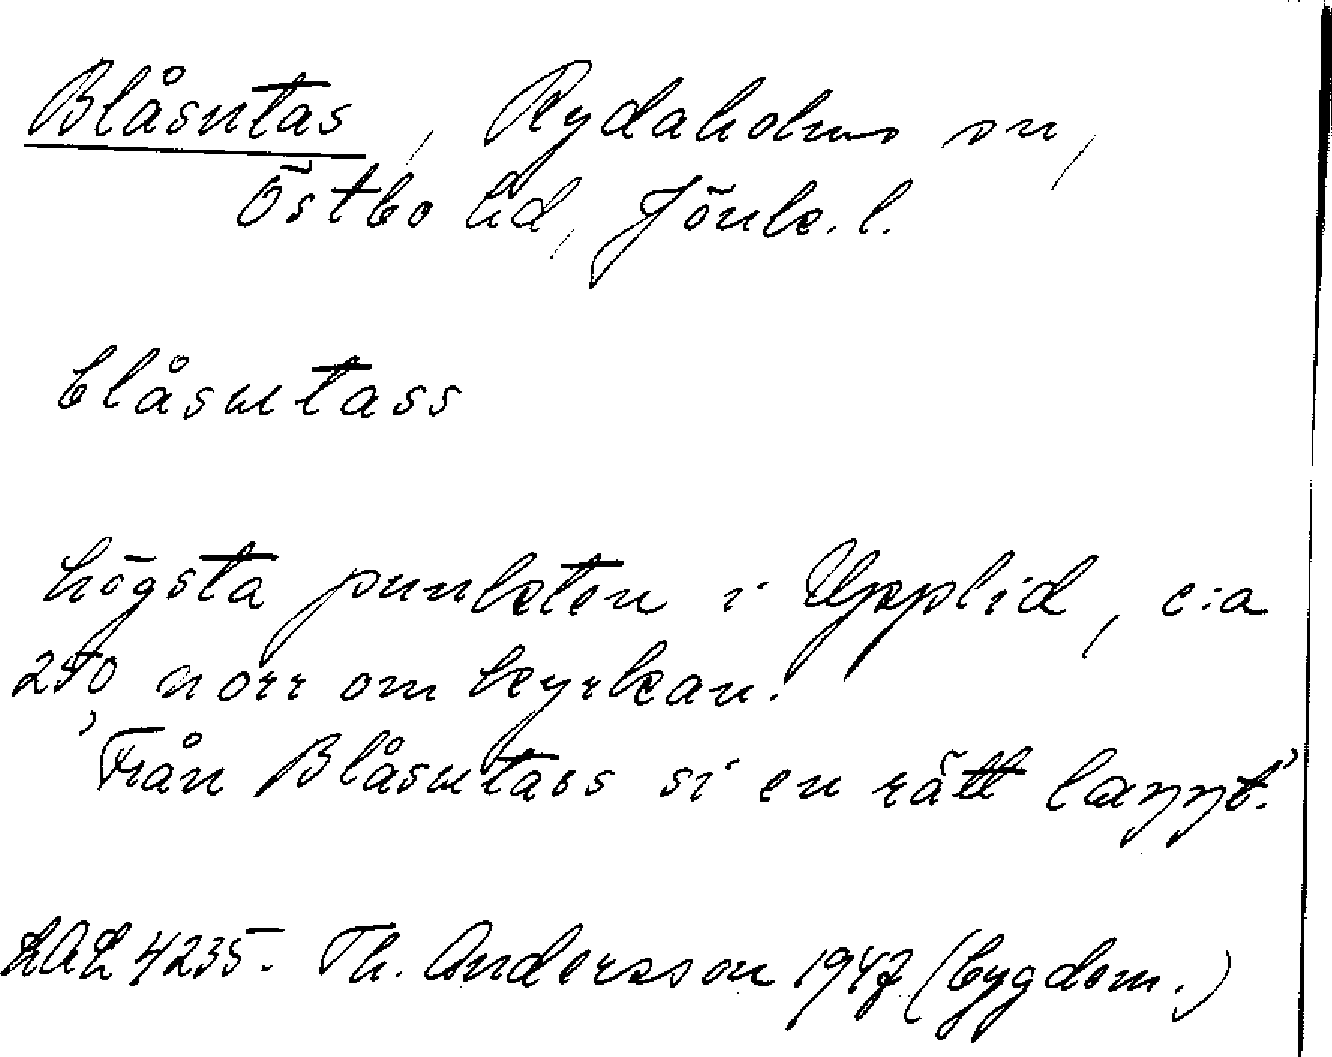 Blåsutas, Rydaholms sn,
Östbo hd, Jönk. l.
blåsutass
högsta punkten i Upplid, c:a
250 norr om kyrkan.
'Från Blåsutass si en rätt laŋŋt.'
LAL 4235. Th. Andersson 1947 (bygdem.)